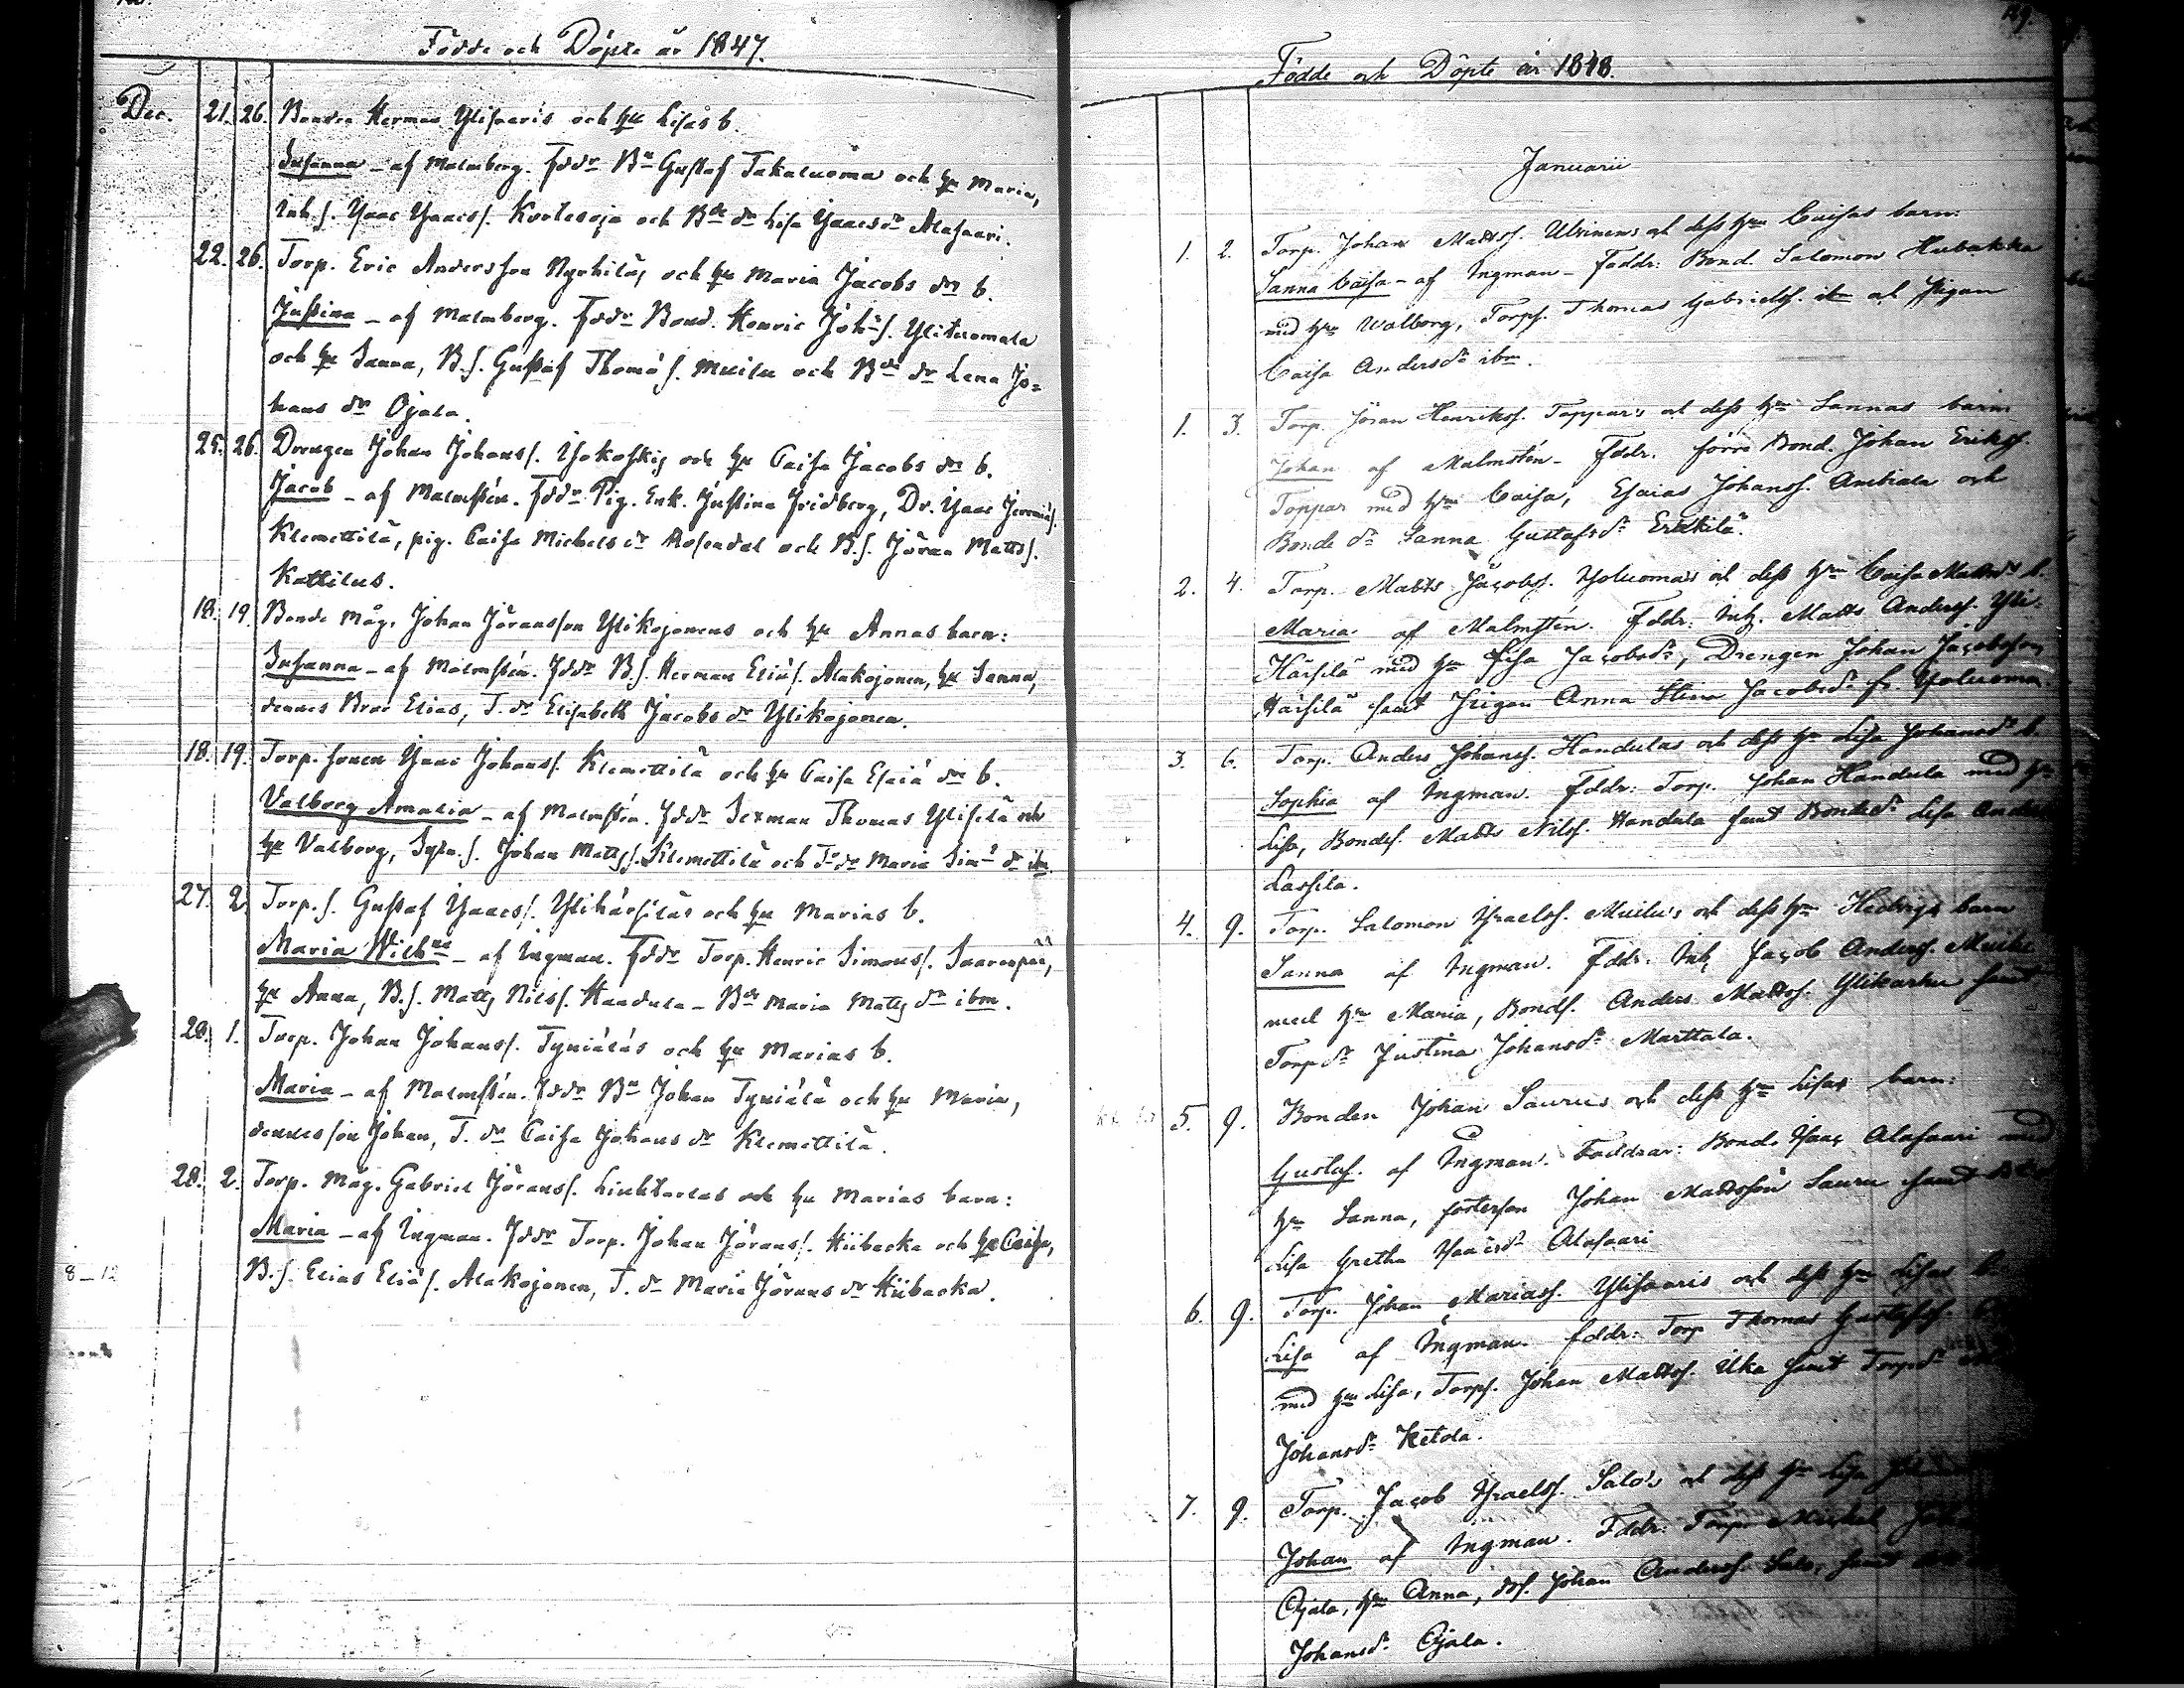 Födde och Döpte år 1847.
Dec. 21. 26. Bonden Herman Ylisaaris och hu Lisas b.
Susanna - af Malmberg. Fddr Bn Gustaf Takaluoma och hu Maria,
Inh.s. Isaac Isaacs. Kortesoja och Bde dr Lisa Isaacs dr Alasaari.
22. 26. Torp. Eric Andersson Nyrhiläs och hu Maria Jacobs drs b.
Justina - af Malmberg. Fddr Bond. Henric Johs. Ylituomala
och hu Sanna, B.s. Gustaf Thomas. Muilu och Bde dr Lena Jo=
hans dr Ojala.
25. 26. Drengen Johan Johanss. Isokoskis och hu Caisa Jacobs drs b.
Jacob - af Malmstén. Fddr Pig. Enk. Justina Fridberg, Dr. Isaac Jeremiás.
Klemettilä, pig. Caisa Michels dr Rosendal och B.s. Jöran Matts s.
Kattilus.
18. 19. Bonde måg. Johan Jöransson Ylikojonens och hu Annas barn:
Susanna - af Malmstén. Fddr B.s. Herman Eliäs. Alakojonen, hu Sanna,
dennes Bror Elias, T. dr Elisabeth Jacobs dr Ylikojonen.
18. 19. Torp. sonen Isaac Johanss. Klemettilä och hu Caisa Esaiä drs b.
Valborg Amalia - af Malmstén. Fddr Sexman Thomas Ylisilä och
hu Valborg, Sytn.s. Johan Matts s. Klemettilä och T. dr Maria Sim. dr ibm.
27. 2. Torp.s. Gustaf Isaacs. Ylihärsiläs och hu Marias b.
Maria Wilhna - af Ingman. Fddr Torp. Henric Simonss. Saarenpää,
hu Anna, B.s. Matts Nilss. Handula - Bdr Maria Matts dr ibm.
28. 1. Torp. Johan Johanss. Tyniäläs och hu Marias b.
Maria - af Malmstén. Fddr Bn Johan Tyniälä och hu Maria,
dennes son Johan, T. dr Caisa Johans dr Klemettilä.
28. 2. Torp. Måg. Gabriel Jöranss. Liuhtarlas och hu Marias barn:
Maria - af Ingman. Fddr Torp. Johan Jöranss. Hiibacka och hu Caisa,
B.s. Elias Eliäs. Alakojonen, T. dr Maria Jörans dr Hiibacka.
8-12
Födde och Döpte år 1848.
Januarii
1. 2. Torp. Johan Mattss. Ulvinens och dess hru Caisas barn:
Sanna Caisa - af Ingman - Faddr: Bond. Salomon Hubakka
med hru Walborg, Torps. Thomas Gabrielss. ib. och Pigan
Caisa Andersdr ibm.
1. 3. Torp. Jöran Henrikss. Toppar's och dess hru Sannas barn
Johan af Malmstén - Fddr. förre Bond. Johan Erikss.
Toppar med hru Caisa, Esaias Johanss. Anttiala och
Bonde dr Sanna Gustafsdr Erkkilä.
2. 4. Torp. Matts Jacobss. Isoluoma's och dess hru Caisa Mattsdrs b.
Maria af Malmstén. Fddr: Inh. Matts Anderss. Yli-
Härsilä med hru Lisa Jacobsdr, Drengen Johan Jacobsson
Härsilä samt Pigan Anna Stina Jacobsdr fr. Isoluoma.
3. 6. Torp. Anders Johanss. Handulas och dess hru Lisa Johansdrs b.
Sophia af Ingman. Fddr: Torp. Johan Handula med hru
Lisa, Bondes. Matts Nilss. Handula samt Bondedr Lisa
Lassila.
4. 9. Torp. Salomon Israelss. Muilu's och dess hru Hedvigs barn
Sanna af Ingman. Fddr. Inh. Jacob Anderss. Muilu
med hru Maria, Bonds. Anders Mattss. Ylikarhu samt
Torpdr Justina Johansdr Marttala.
5. 9. Bonden Johan Saurus och dess hru Lisas barn:
Gustaf. af Ingman. Faddrar: Bond. Isaac Alasaari med
hru Sanna, fosterson Johan Mattsson Sauru samt
Lisa Gretha Isaacsdr Alasaari
6. 9. Torp. Johan Mariass. Ylisaaris och dess hru Lisas b.
Lisa af Ingman. Fddr: Torp Thomas Gustafss.
med hru Lisa, Torps. Johan Mattss. Uka samt Torpdr
Johansdr Ketola.
7. 9. Torp. Jacob Israelss. Salo's och dess hru Lisa
Johan af Ingman. Fddr: Torp. Michel
Ojala, hru Anna, ds. Johan Anderss. Salo, samt
Johansdr Ojala.